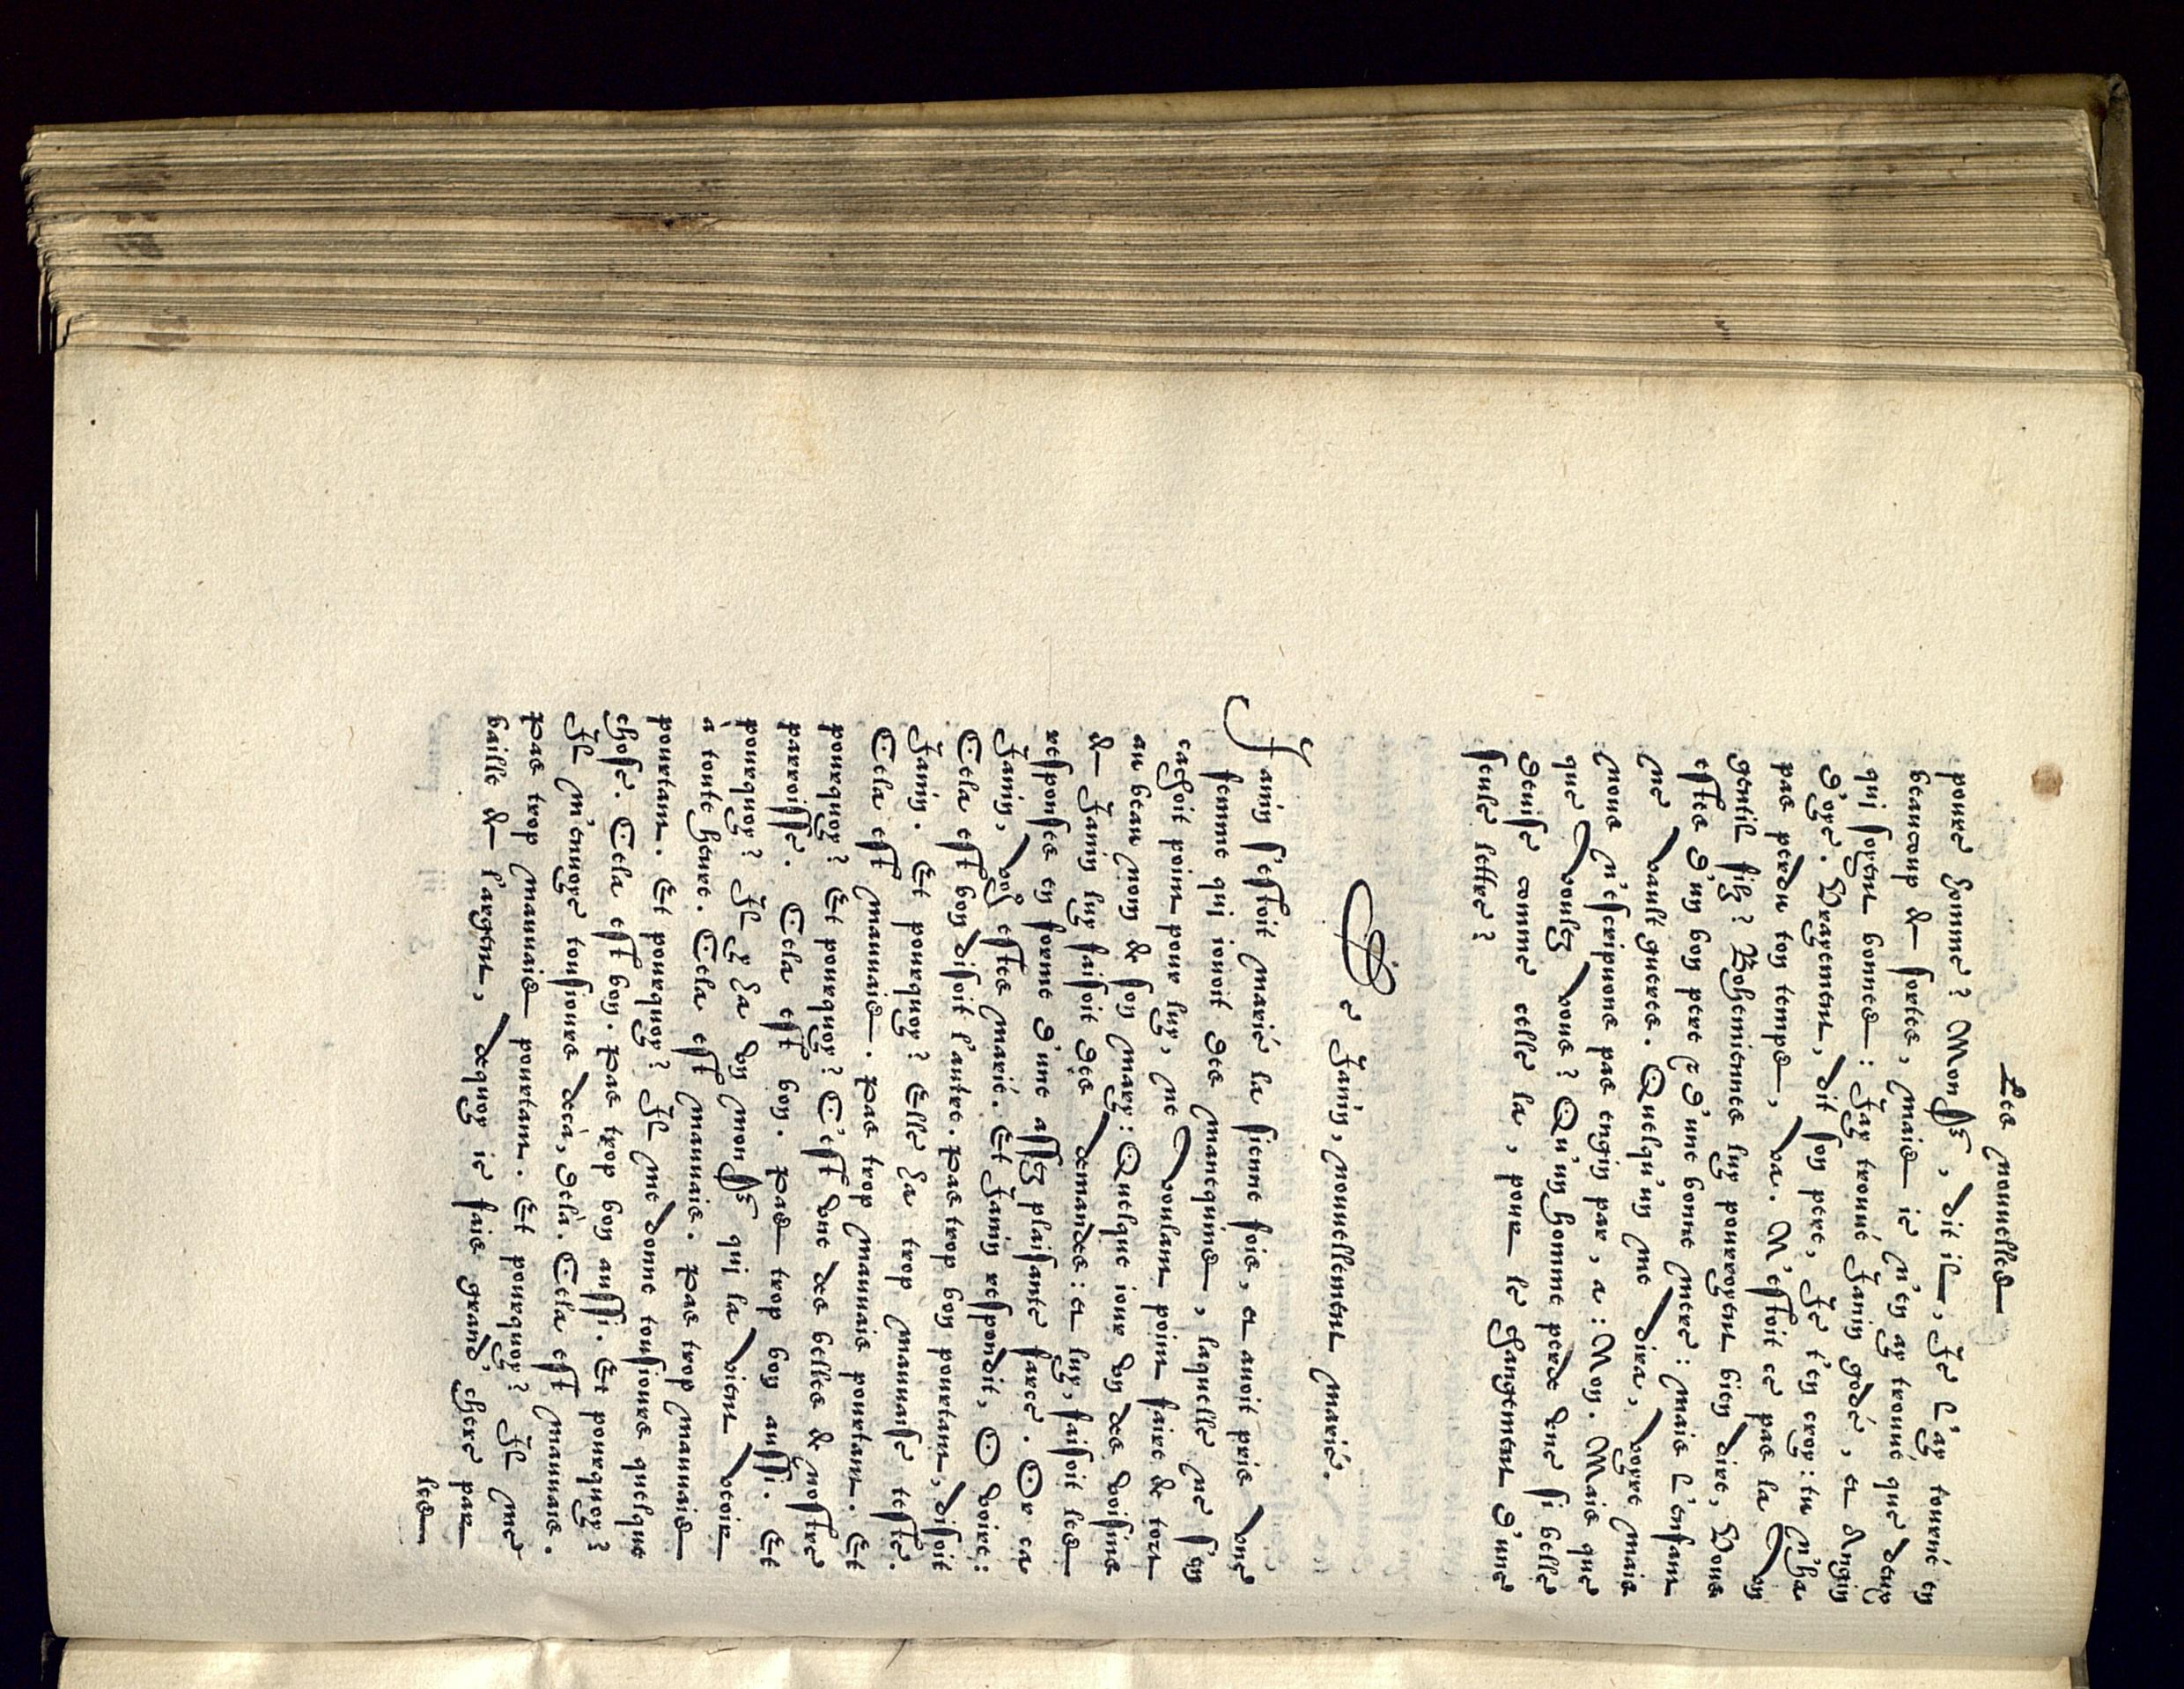 Les nouuelles
poure homme? Mon sʳ, dit il, Je l'ay tourné en
beaucoup de sortes, mais ie n'en ay trouué que deux
qui soyent bonnes: Jay trouué Janin godé, et Angin
d'oye. Vrayement, dit son pere, Je t'en croy: tu n'has
pas perdu ton temps, va. N'estoit ce pas la vn
gentil filz? Bohemiennes luy pourroyent bien dire, Vous
estes d'un bon pere & d'une bonne mere: mais l'enfant
ne vault gueres. Quelqu'un me dira, voyre mais
nous n'escripuons pas engin par, a: Non. Mais que
que voulez vous? Qu'un homme perde vne si belle
deuise comme celle la, pour le changement d'une
seule lettre?
De Janin, nouuellement marié.
Janin s'estoit marié la sienne fois, et auoit pris vne
femme qui iouoit des manequins, laquelle ne s'en
cachoit point pour luy, ne voulant point faire de tort
au beau nom de son mary: Quelque iour vn des voisins
de Janin luy faisoit des demandes: et luy, faisoit les
responses en forme d'une assez plaisante farce. Or ca
Janin, vous estes marié. Et Janin respondit, O voire:
Cela est bon disoit l'autre. Pas trop bon pourtant, disoit
Janin. Et pourquoy? Elle ha trop mauuaise teste.
Cela est mauuais. Pas trop mauuais pourtant. Et
pourquoy? Et pourquoy? C'est vne des belles de nostre
parroisse. Cela est bon. Pas trop bon aussi. Et
pourquoy? Jl y ha vn monsʳ qui la vient veoir
à toute heure. Cela est mauuais. Pas trop mauuais
pourtant. Et pourquoy? Jl me donne tousiours quelque
chose. Cela est bon. Pas trop bon aussi. Et pourquoy?
Jl m'enuoye tousiours decà, delà. Cela est mauuais.
Pas trop mauuais pourtant. Et pourquoy? Jl me
baille de l'argent, dequoy ie fais grand' chere par
les